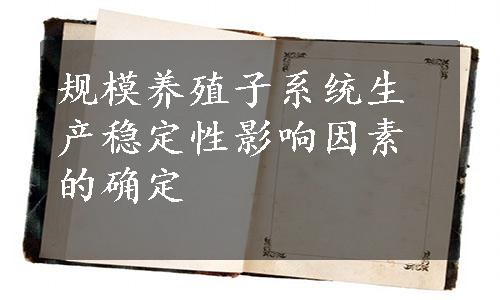 规模养殖子系统生
产稳定性影响因素
的确定